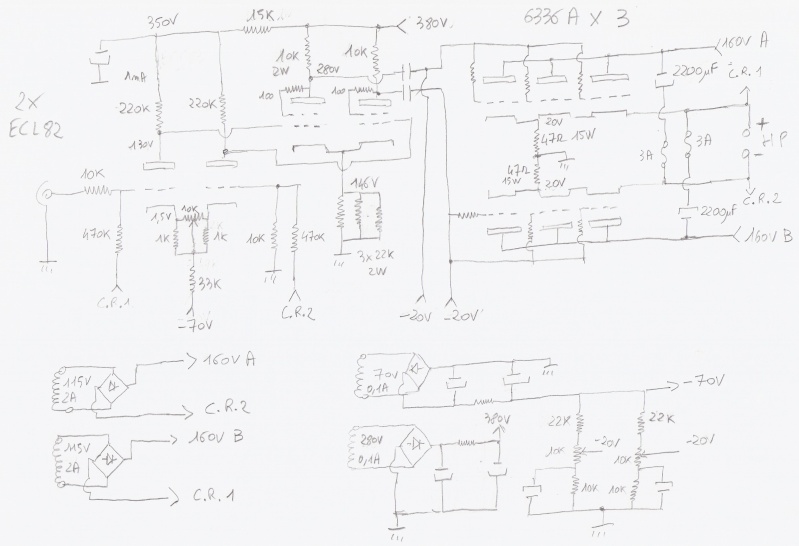 350V
15K
380V.
6336 A x 3
10K
2W
280V
10K
160V A
2200µF
C.R.1
1mA
100
100
2X
ECL82
220K
220K
130V
20V
47Ω
15W
47Ω
15W
20V
3A
3A
+
HP
-
10K
146V
C.R.2
10K
1,5V
1K
1K
470K
10K
470K
3x22K
2W
2200µF
160V B
33K
C.R.1
-70V
C.R.2
-20V
-20V
160V A
115V
2A
C.R.2
160V B
115V
2A
C.R.1
70V
0,1A
-70V
380V
280V
0,1A
22K
22K
10K
-20V
10K
-20V
10K
10K